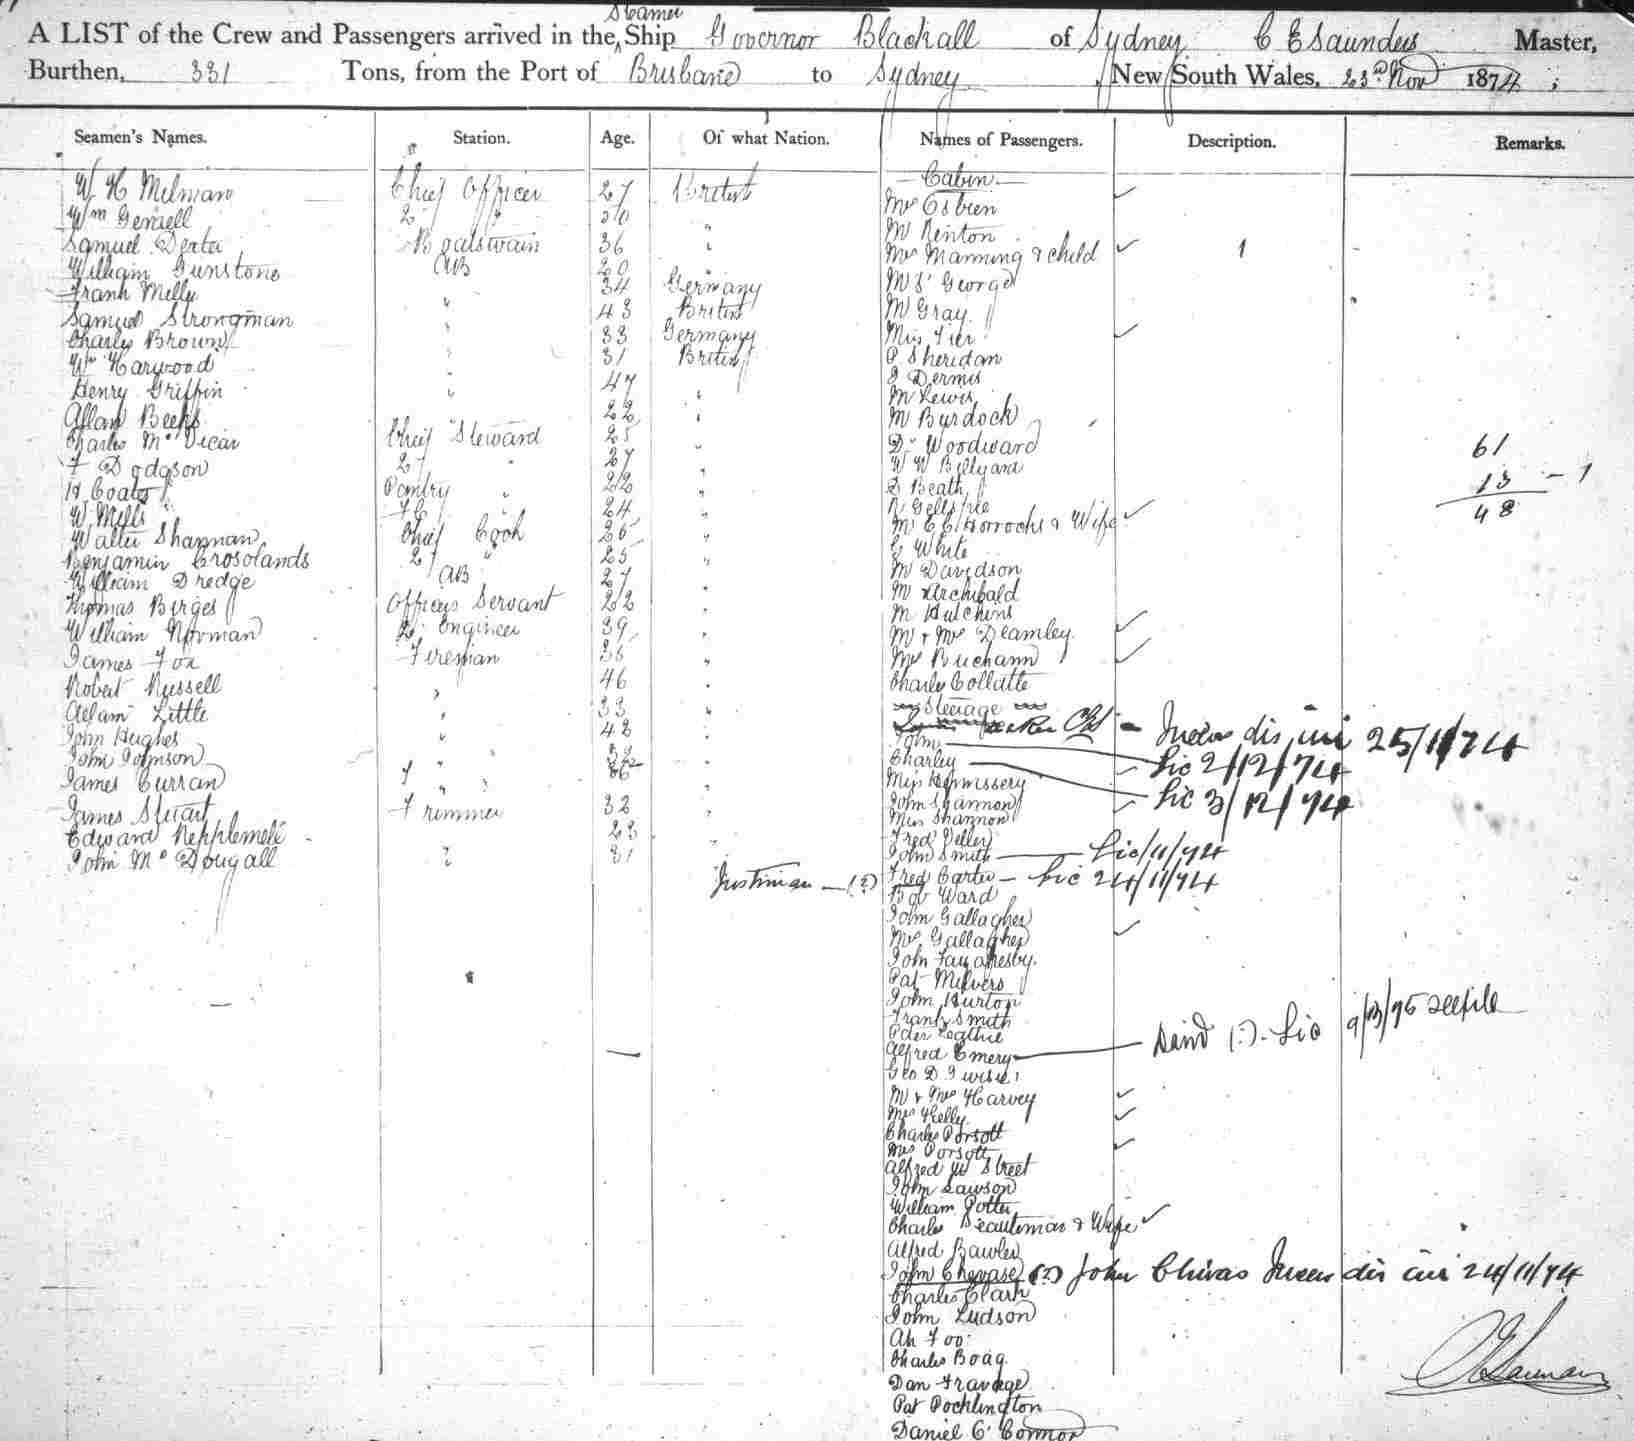 Steamer
A LIST of the Crew and Passengers arrived in the Ship Governor Blackall of Sydney C E Saunders Master,
Burthen, 331 Tons, from the Port of Brisbane to Sydney, New South Wales, 23rd Nov 1874;
Seamen's Names. Station. Age. Of what Nation. Names of Passengers. Description. Remarks.
W H Milman Chief Officer 27 British
Wm 2 " 30 "
Samuel Boatswain 36 "
William Gunstone AB 20
Frank Milly " 34 Germany
Samuel Strongman " 43 British
Charles Brown " 33 Germany
Wm Harwood " 31 British
Henry Griffin " 47 "
Allan 22 "
Charles McVicar Chief Steward 25 "
F Dodgson 2 " 27 "
H Coates Pantry " 22 "
W Mills FC 24 "
Walter Shannan Chief Cook 26 "
Benjamin Crosolands 2 " 25 "
William Dredge AB 27 "
Thomas Birges Officers Servant 22 "
William Norman 2 Engineer 39 "
James Fox Fireman 36 "
Robert Russell " 46 "
Adam Little " 33 "
John Hughes " 42 "
John Johnson " "
James Curran " "
James Stuart Trimmer 32 "
Edward 23 "
John McDougall " 31
Cabin
Mrs Osbien
Mr Renton
Mrs Manning & child 1
Mr St George
Mr Gray
Miss Tier
P Sheridan
J Dermis
Mr Lewis
Mr Burdock
Dr Woodward 61
W W Billyard
D Beath 13 - 1
R Gellspie 48
Mr C C Horrocks & Wife
G White
Mr Davidson
Mr Archibald
Mr Hutchins
Mr & Mrs Deamley
Mrs Buchann
Charles Collatte
Steerage
25/11/74
John Lic 2/12/74
Charley Lic 3/12/74
Miss
John Shannon
Miss Shannon
Fred
John Smith Lic /11/74
Justinian (?) Fred Carter Lic 24/11/74
Bob Ward
John Gallagher
Mrs Gallagher
John
Pat Milvers
John Burton
Frank Smith
Peter
Alfred Emery David (?) Lic 9/3/75 see file
Geo D
Mr & Mrs Harvey
Mrs Kelly
Charles Porsott
Mrs Porsott
Alfred W Street
John Lawson
William Potter
Charles & Wife
Alfred Bawler
John Chevase (?) John Chivas 24/11/74
Charles Clark
John Ludson
Ah Foo
Charles Boag
Dan
Pat Pocklington
Daniel O'Connor
C E Saunders